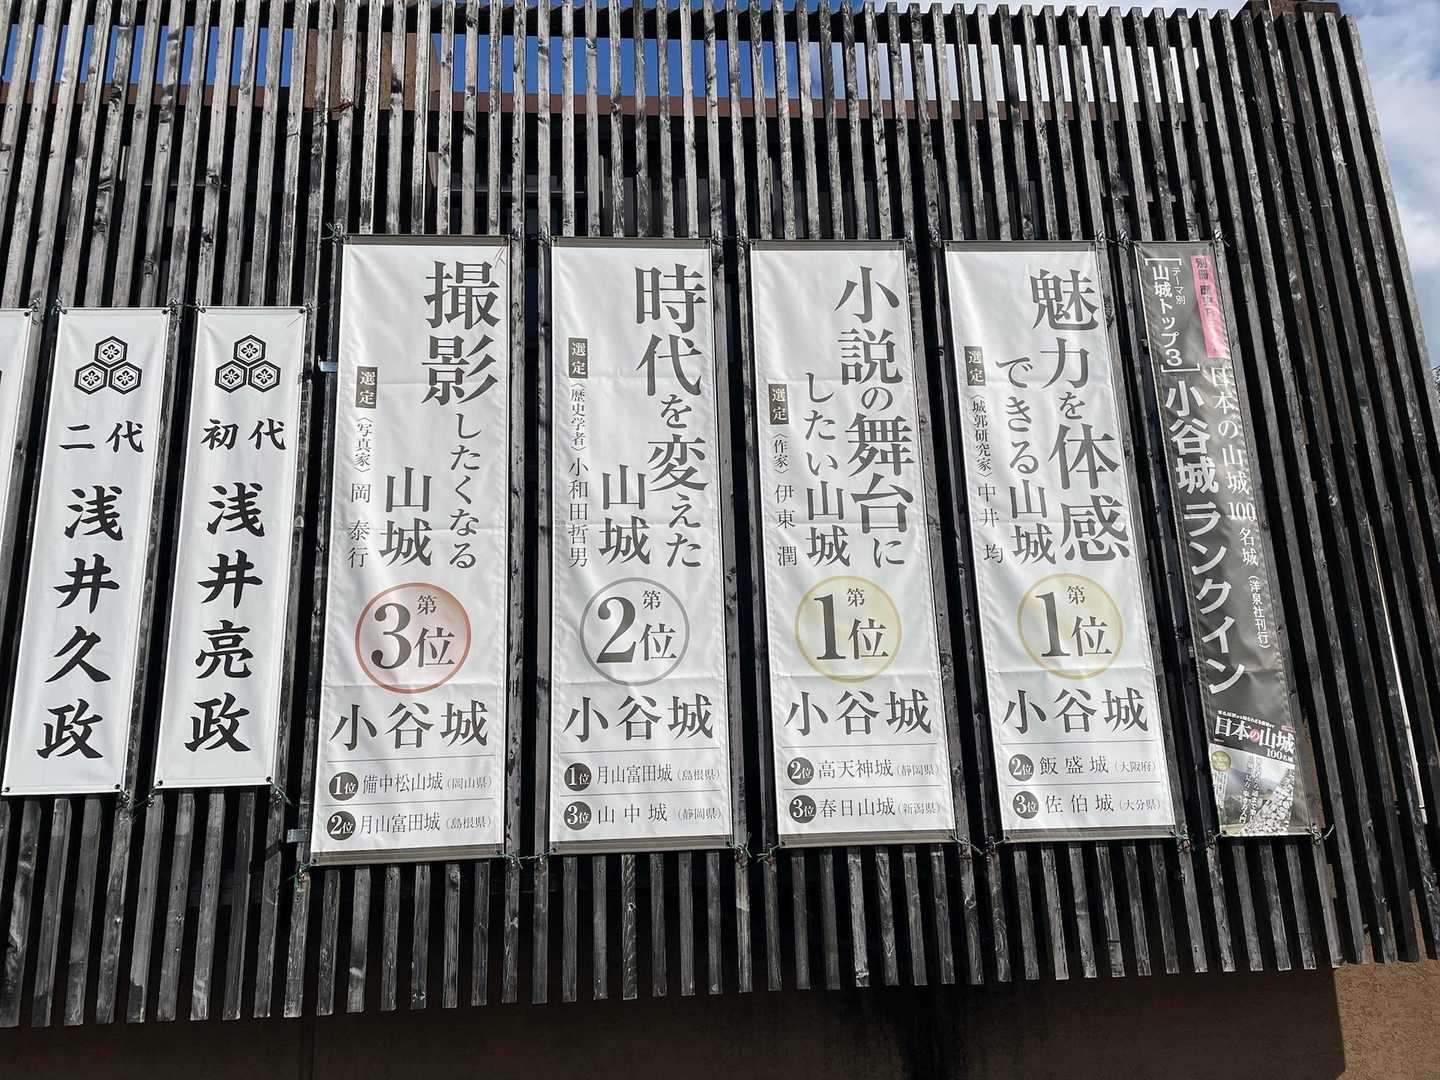 別冊
テーマ別
[山城トップ3]
日本の山城100名城(洋泉社刊行)
小谷城ランクイン
日本の山城
100名城
魅力を体感
できる山城
選定
(城郭研究家)中井 均
第1位
小谷城
2位 飯盛城(大阪府)
3位 佐伯城(大分県)
小説の舞台に
したい山城
選定
(作家)伊東 潤
第1位
小谷城
2位 高天神城(静岡県)
3位 春日山城(新潟県)
時代を変えた
山城
選定
(歴史学者)小和田哲男
第2位
小谷城
1位 月山富田城(島根県)
3位 山中城(静岡県)
撮影したくなる
山城
選定
(写真家)岡 泰行
第3位
小谷城
1位 備中松山城(岡山県)
2位 月山富田城(島根県)
初代
浅井亮政
二代
浅井久政